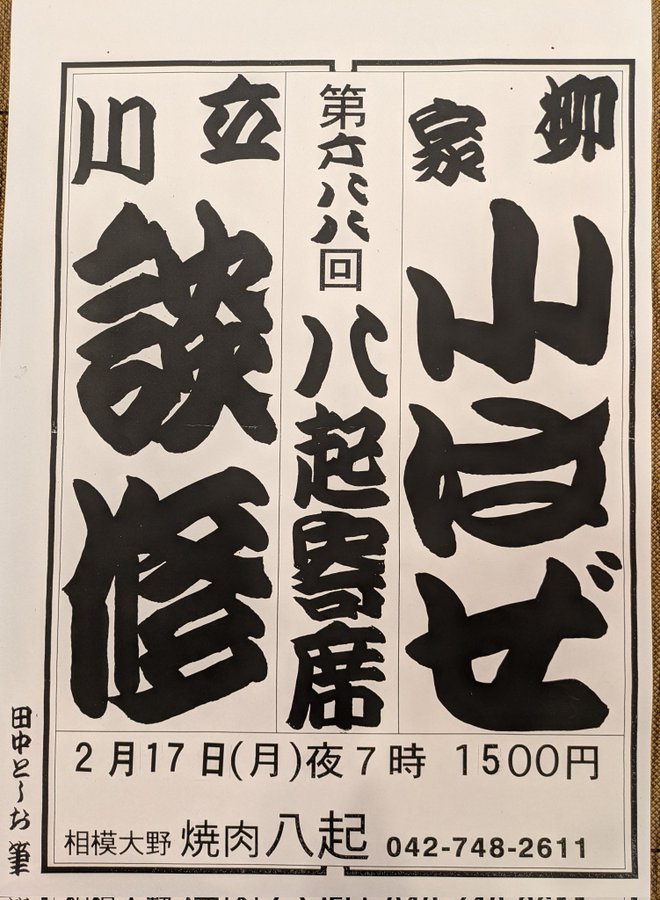 柳家
小はぜ
第六八八回
八起寄席
立川
談修
2月17日(月)夜7時 1500円
相模大野 焼肉八起 042-748-2611
田中と〜お筆